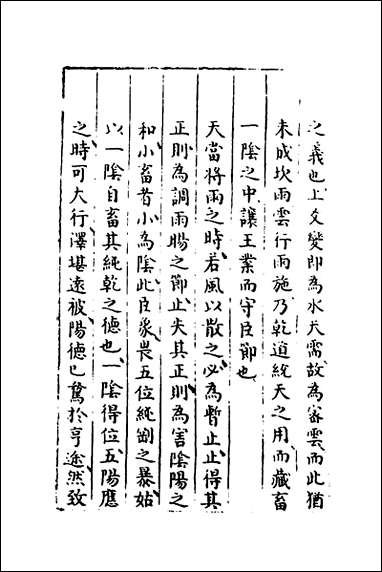 之義也上爻變即為水天需故為密雲而此猶
未成坎雨雲行雨施乃乾道統天之用而藏畜
一陰之中讓王業而守臣節也
天當將雨之時若風以散之必為暫止止得其
正則為調雨暘之節止失其正則為害陰陽之
和小畜昔小為陰此臣象畏五位純劉之暴姑
以一陰自畜其純乾之德也一陰得位五陽應
之時可大行澤堪遠被陽德已駕於亨途然致